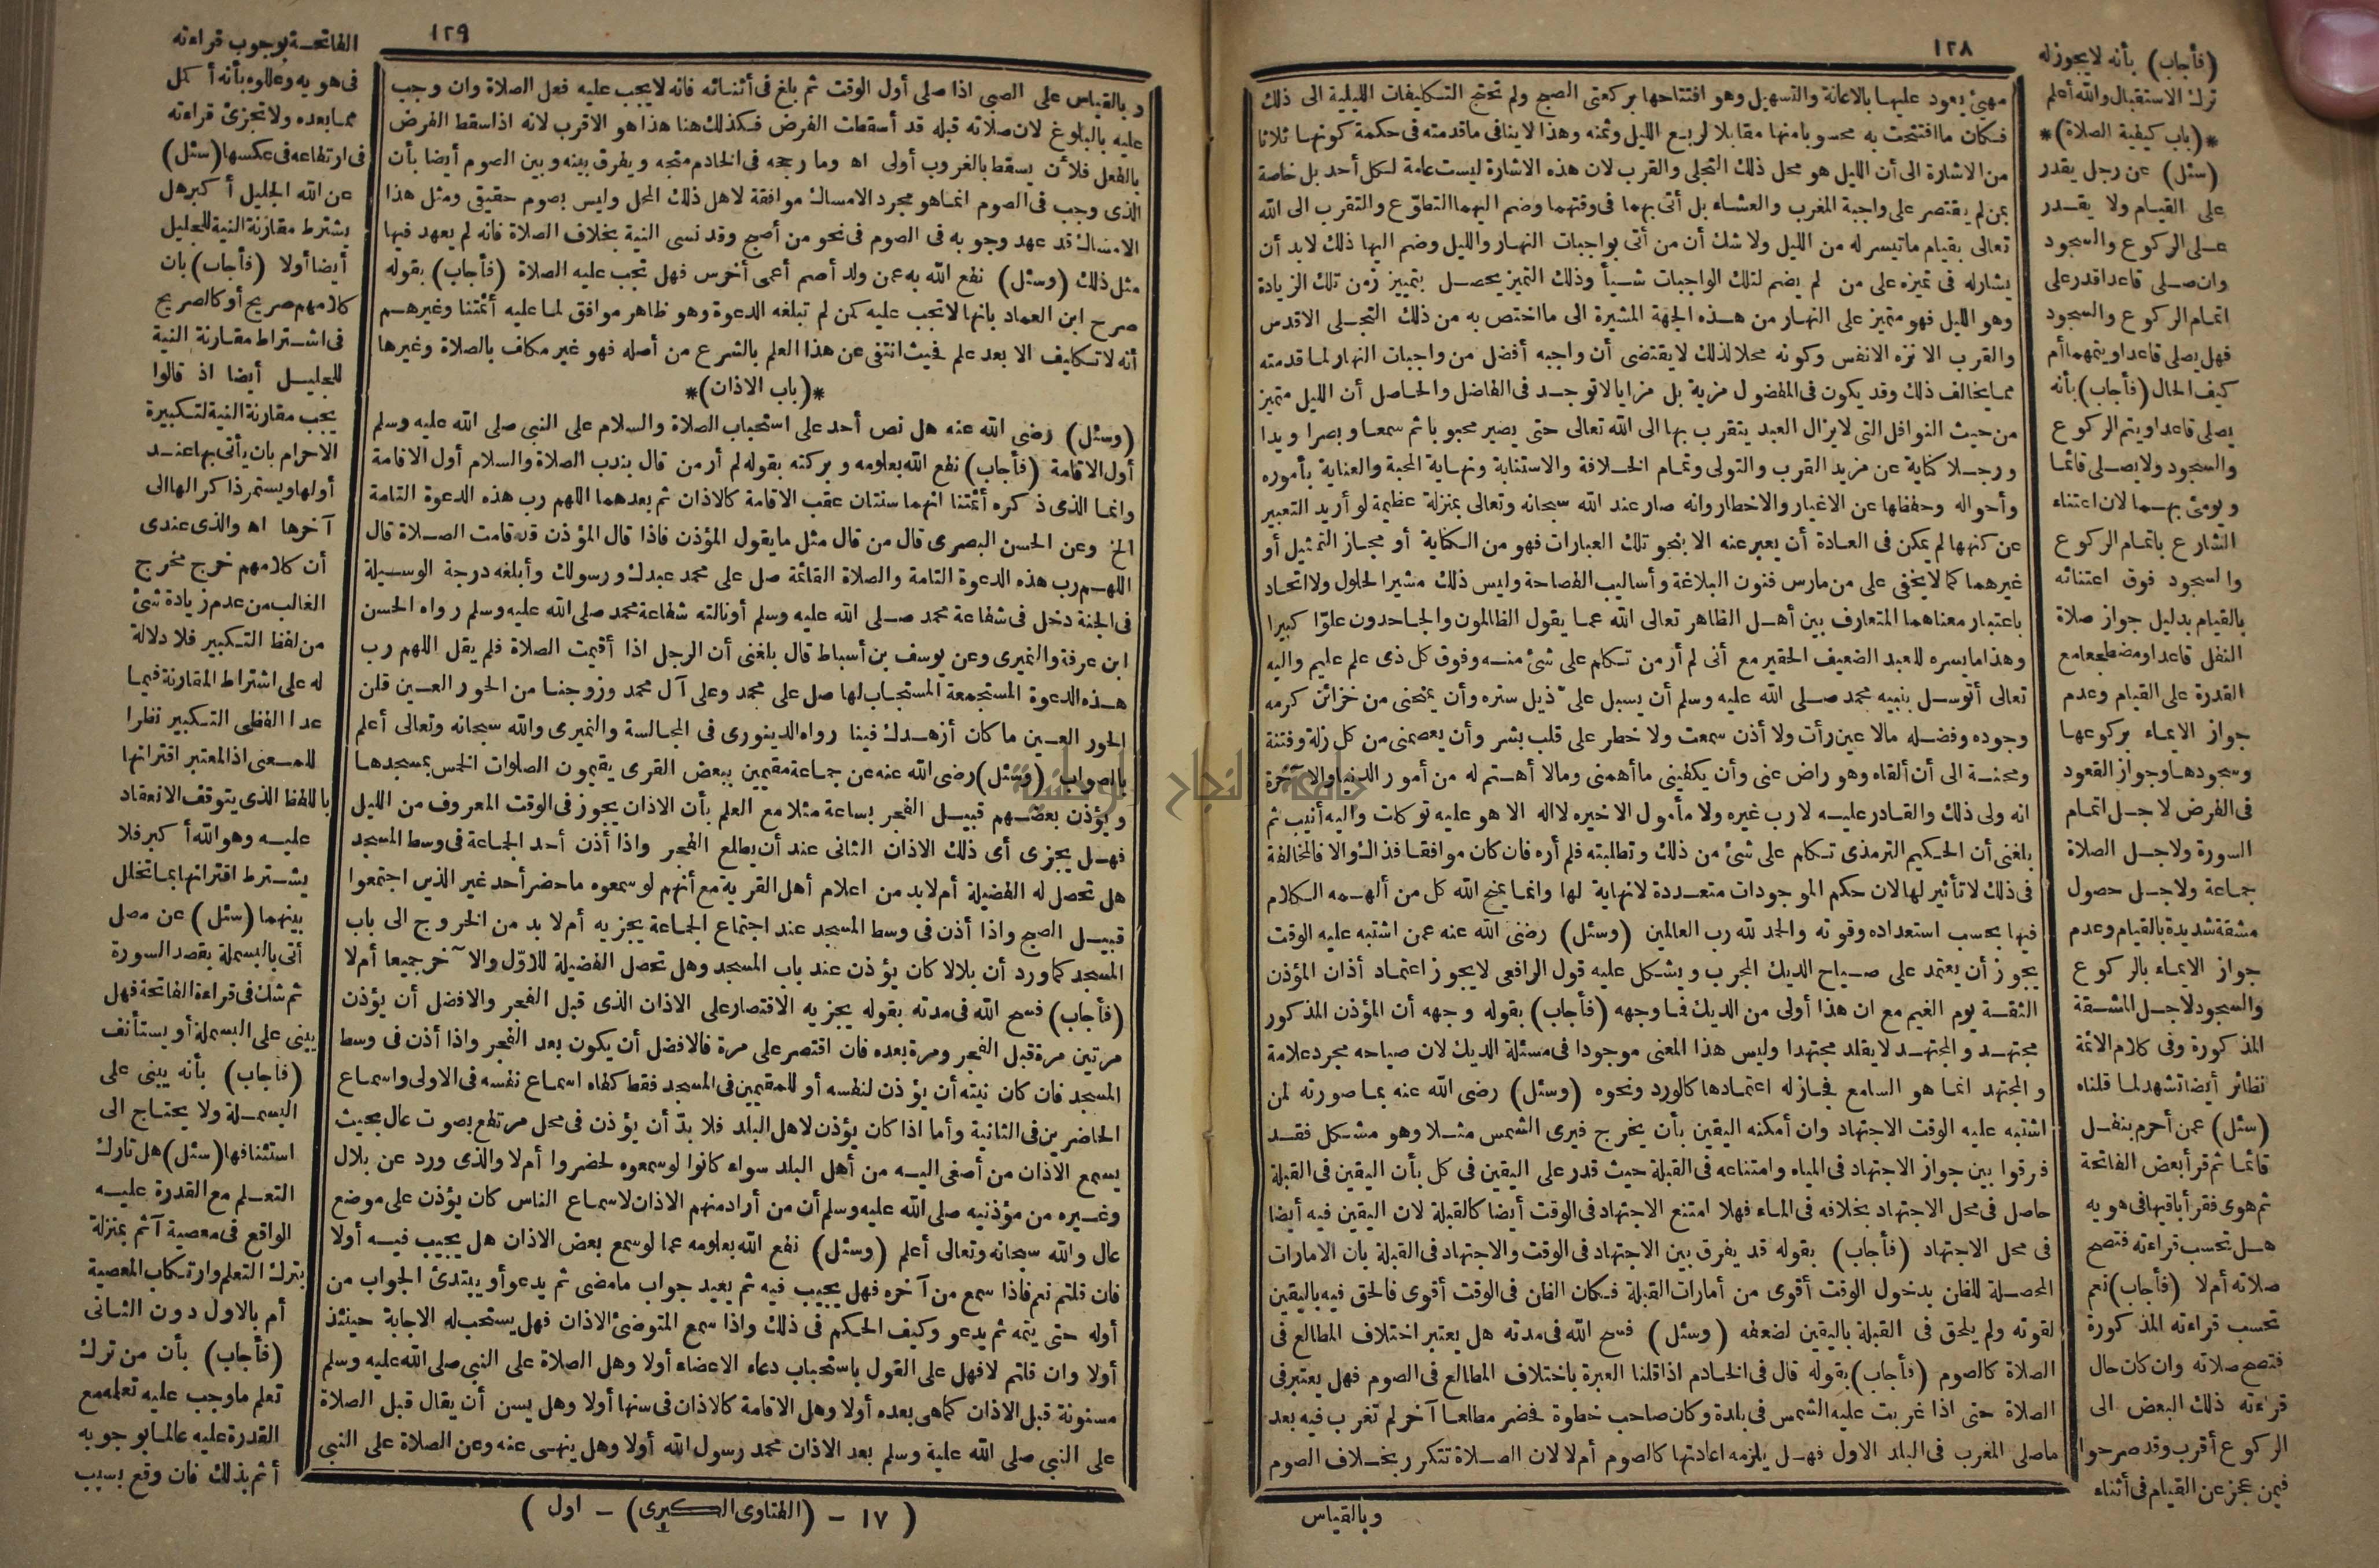 ١٢٨
مهيئ يعود عليها بالاعانة والتسهيل وهو افتتاحها بركعتى الصبح ولم تحتج التكليفات الليلية الى ذلك
فكان ما افتتحت به محسوبا منها مقابلا لربع الليل وثمنه وهذا لا ينافى ما قدمته فى حكمة كونها ثلاثا
من الاشارة الى أن الليل هو محل ذلك التجلى والقرب لان هذه الاشارة ليست عامة لكل أحد بل خاصة
بمن لم يقتصر على واجبة المغرب والعشاء بل أتى بهما فى وقتهما وضم اليهما التطوّع والتقرب الى الله
تعالى بقيام ما تيسر له من الليل ولا شك أن من أتى بواجبات النهار والليل وضم اليها ذلك لابد أن
يشارله فى تميزه على من لم يضم لتلك الواجبات شيأ وذلك التميز يحصل بتمييز زمن تلك الزيادة
وهو الليل فهو متميز على النهار من هذه الجهة المشيرة الى ما اختص به من ذلك التجلى الاقدس
والقرب الانزه الانفس وكونه محلا لذلك لا يقتضى أن واجبه أفضل من واجبات النهار لما قدمته
مما يخالف ذلك وقد يكون فى المفضول مزية بل مزايا لا توجد فى الفاضل والحاصل أن الليل متميز
من حيث النوافل التى لا يزال العبد يتقرب بها الى الله تعالى حتى يصير محبوبا ثم سمعا وبصرا ويدا
ورجلا كناية عن مزيد القرب والتولى وتمام الخلافة والاستنابة ونهاية المحبة والعناية بأموره
وأحواله وحفظها عن الاغيار والاخطار وانه صار عند الله سبحانه وتعالى بمنزلة عظيمة لو أريد التعبير
عن كنهها لم يمكن فى العادة أن يعبر عنه الا بنحو تلك العبارات فهو من الكناية أو مجاز التمثيل أو
غيرهما كما لا يخفى على من مارس فنون البلاغة وأساليب الفصاحة وليس ذلك مشيرا لحلول ولا اتحاد
باعتبار معناهما المتعارف بين أهل الظاهر تعالى الله عما يقول الظالمون والجاحدون علوّا كبيرا
وهذا ما يسره للعبد الضعيف الحقير مع أنى لم أر من تكلم على شئ منه وفوق كل ذى علم عليم واليه
تعالى أتوسل بنبيه محمد صلى الله عليه وسلم أن يسبل علىّ ذيل ستره وأن يمنحنى من خزائن كرمه
وجوده وفضله مالا عين رأت ولا أذن سمعت ولا خطر على قلب بشر وأن يعصمنى من كل زلة وفتنة
ومحنة الى أن ألقاه وهو راض عنى وأن يكفينى ما أهمنى ومالا أهتم له من أمور الدنيا والآخرة
انه ولى ذلك والقادر عليه لا رب غيره ولا مأمول الا خيره لا اله الا هو عليه توكلت واليه أنيب ثم
بلغنى أن الحكيم الترمذى تكلم على شئ من ذلك وتطلبته فلم أره فان كان موافقا فذاك والا فالمخالفة
فى ذلك لا تأثير لها لان حكم الموجودات متعددة لا نهاية لها وانما يمنح الله كل من ألهمه الكلام
فيها بحسب استعداده وقوته والحمد لله رب العالمين (وسئل) رضى الله عنه عمن اشتبه عليه الوقت
يجوز أن يعتمد على صياح الديك المجرب ويشكل عليه قول الرافعى لا يجوز اعتماد أذان المؤذن
الثقة يوم الغيم مع ان هذا أولى من الديك فما وجهه (فأجاب) بقوله وجهه أن المؤذن المذكور
مجتهد والمجتهد لا يقلد مجتهدا وليس هذا المعنى موجودا فى مسئلة الديك لان صياحه مجرد علامة
والمجتهد انما هو السامع فجاز له اعتمادها كالورد ونحوه (وسئل) رضى الله عنه بما صورته لمن
اشتبه عليه الوقت الاجتهاد وان أمكنه اليقين بأن يخرج فيرى الشمس مثلا وهو مشكل فقد
فرقوا بين جواز الاجتهاد فى المياه وامتناعه فى القبلة حيث قدر على اليقين فى كل بأن اليقين فى القبلة
حاصل فى محل الاجتهاد بخلافه فى الماء فهلا امتنع الاجتهاد فى الوقت أيضا كالقبلة لان اليقين فيه أيضا
فى محل الاجتهاد (فأجاب) بقوله قد يفرق بين الاجتهاد فى الوقت والاجتهاد فى القبلة بان الامارات
المحصلة للظن بدخول الوقت أقوى من أمارات القبلة فكان الظن فى الوقت أقوى فالحق فيه باليقين
لقوته ولم يلحق فى القبلة باليقين لضعفه (وسئل) فسح الله فى مدته هل يعتبر اختلاف المطالع فى
الصلاة كالصوم (فأجاب) بقوله قال فى الخادم اذا قلنا العبرة باختلاف المطالع فى الصوم فهل يعتبر فى
الصلاة حتى اذا غربت عليه الشمس فى بلدة وكان صاحب خطوة فحضر مطلعا آخر لم تغرب فيه بعد
ما صلى المغرب فى البلد الاول فهل يلزمه اعادتها كالصوم أم لا لان الصلاة تتكرر بخلاف الصوم
وبالقياس
(فأجاب) بأنه لا يجوز له
ترك الاستقبال والله أعلم
*(باب كيفية الصلاة)*
(سئل) عن رجل يقدر
على القيام ولا يقدر
على الركوع والسجود
وان صلى قاعدا قدر على
اتمام الركوع والسجود
فهل يصلى قاعدا ويتمهما أم
كيف الحال (فأجاب) بأنه
يصلى قاعدا ويتم الركوع
والسجود ولا يصلى قائما
ويومئ بهما لان اعتناء
الشارع باتمام الركوع
والسجود فوق اعتنائه
بالقيام بدليل جواز صلاة
النفل قاعدا ومضطجعا مع
القدرة على القيام وعدم
جواز الايماء بركوعها
وسجودها وجواز القعود
فى الفرض لاجل اتمام
السورة ولاجل الصلاة
جماعة ولاجل حصول
مشقة شديدة بالقيام وعدم
جواز الايماء بالركوع
والسجود لاجل المشقة
المذكورة وفى كلام الائمة
نظائر أيضا تشهد لما قلناه
(سئل) عمن أحرم بنفل
قائما ثم قرأ بعض الفاتحة
ثم هوى فقرأ باقيها فى هويه
هل تحسب قراءته فتصح
صلاته أم لا (فأجاب) نعم
تحسب قراءته المذكورة
فتصح صلاته وان كان حال
قراءته ذلك البعض الى
الركوع أقرب وقد صرحوا
فيمن عجز عن القيام فى أثناء
١٢٩
وبالقياس على الصبى اذا صلى أول الوقت ثم بلغ فى أثنائه فانه لا يجب عليه فعل الصلاة وان وجب
عليه بالبلوغ لان صلاته قبله قد أسقطت الفرض فكذلك هنا هذا هو الاقرب لانه اذا سقط الفرض
بالفعل فلأن يسقط بالغروب أولى اه وما رجحه فى الخادم متجه ويفرق بينه وبين الصوم أيضا بأن
الذى وجب فى الصوم انما هو مجرد الامساك موافقة لاهل ذلك المحل وليس بصوم حقيقى ومثل هذا
الامساك قد عهد وجوبه فى الصوم فى نحو من أصبح وقد نسى النية بخلاف الصلاة فانه لم يعهد فيها
مثل ذلك (وسئل) نفع الله به عمن ولد أصم أعمى أخرس فهل تجب عليه الصلاة (فأجاب) بقوله
صرح ابن العماد بانها لا تجب عليه كمن لم تبلغه الدعوة وهو ظاهر موافق لما عليه أئمتنا وغيرهم
أنه لا تكليف الا بعد علم فحيث انتفى عن هذا العلم بالشرع من أصله فهو غير مكلف بالصلاة وغيرها
*(باب الاذان)*
(وسئل) رضى الله عنه هل نص أحد على استحباب الصلاة والسلام على النبى صلى الله عليه وسلم
أول الاقامة (فأجاب) نفع الله بعلومه وبركته بقوله لم أر من قال بندب الصلاة والسلام أول الاقامة
وانما الذى ذكره أئمتنا انهما سنتان عقب الاقامة كالاذان ثم بعدهما اللهم رب هذه الدعوة التامة
الخ وعن الحسن البصرى قال من قال مثل ما يقول المؤذن فاذا قال المؤذن قد قامت الصلاة قال
اللهم رب هذه الدعوة التامة والصلاة القائمة صل على محمد عبدك ورسولك وأبلغه درجة الوسيلة
فى الجنة دخل فى شفاعة محمد صلى الله عليه وسلم أو نالته شفاعة محمد صلى الله عليه وسلم رواه الحسن
ابن عرفة والنميرى وعن يوسف بن أسباط قال بلغنى أن الرجل اذا أقيمت الصلاة فلم يقل اللهم رب
هذه الدعوة المستجمعة المستجاب لها صل على محمد وعلى آل محمد وزوجنا من الحور العين قلن
الحور العين ما كان أزهدك فينا رواه الدينورى فى المجالسة والنميرى والله سبحانه وتعالى أعلم
بالصواب (وسئل) رضى الله عنه عن جماعة مقيمين ببعض القرى يقيمون الصلوات الخمس بمسجدها
ويؤذن بعضهم قبيل الفجر بساعة مثلا مع العلم بأن الاذان يجوز فى الوقت المعروف من الليل
فهل يجزى أى ذلك الاذان الثانى عند أن يطلع الفجر واذا أذن أحد الجماعة فى وسط المسجد
هل تحصل له الفضيلة أم لابد من اعلام أهل القرية مع أنهم لو سمعوه ما حضر أحد غير الذين اجتمعوا
قبيل الصبح واذا أذن فى وسط المسجد عند اجتماع الجماعة يجزيه أم لا بد من الخروج الى باب
المسجد كما ورد أن بلالا كان يؤذن عند باب المسجد وهل تحصل الفضيلة للاوّل والآخر جميعا أم لا
(فأجاب) فسح الله فى مدته بقوله يجزيه الاقتصار على الاذان الذى قبل الفجر والافضل أن يؤذن
مرتين مرة قبل الفجر ومرة بعده فان اقتصر على مرة فالافضل أن يكون بعد الفجر واذا أذن فى وسط
المسجد فان كان نيته أن يؤذن لنفسه أو للمقيمين فى المسجد فقط كفاه اسماع نفسه فى الاولى واسماع
الحاضرين فى الثانية وأما اذا كان يؤذن لاهل البلد فلا بدّ أن يؤذن فى محل مرتفع بصوت عال بحيث
يسمع الاذان من أصغى اليه من أهل البلد سواء كانوا لو سمعوه لحضروا أم لا والذى ورد عن بلال
وغيره من مؤذنيه صلى الله عليه وسلم أن من أراد منهم الاذان لاسماع الناس كان يؤذن على موضع
عال والله سبحانه وتعالى أعلم (وسئل) نفع الله بعلومه عما لو سمع بعض الاذان هل يجيب فيه أولا
فان قلتم نعم فاذا سمع من آخره فهل يجيب فيه ثم يعيد جواب ما مضى ثم يدعو أو يبتدئ الجواب من
أوله حتى يتمه ثم يدعو وكيف الحكم فى ذلك واذا سمع المتوضئ الاذان فهل يستحب له الاجابة حينئذ
أولا وان قلتم لا فهل على القول باستحباب دعاء الاعضاء أولا وهل الصلاة على النبى صلى الله عليه وسلم
مسنونة قبل الاذان كما هى بعده أولا وهل الاقامة كالاذان فى سنها أولا وهل يسن أن يقال قبل الصلاة
على النبى صلى الله علية وسلم بعد الاذان محمد رسول الله أولا وهل ينهى عنه وعن الصلاة على النبى
(١٧ - (الفتاوى الكبرى) - اول)
الفاتحة بوجوب قراءته
فى هويه وعللوه بأنه أكمل
مما بعده ولا تجزئ قراءته
فى ارتفاعه فى عكسها (سئل)
عن الله الجليل أكبر هل
يشترط مقارنة النية للجليل
أيضا أولا (فأجاب) بان
كلامهم صريح أو كالصريح
فى اشتراط مقارنة النية
للجليل أيضا اذ قالوا
يجب مقارنة النية لتكبيرة
الاحرام بان يأتى بها عند
أولها ويستمر ذاكرا لها الى
آخرها اه والذى عندى
أن كلامهم خرج مخرج
الغالب من عدم زيادة شئ
من لفظ التكبير فلا دلالة
له على اشتراط المقارنة فيما
عدا لفظى التكبير نظرا
للمعنى اذ المعتبر اقترانها
باللفظ الذى يتوقف الانعقاد
عليه وهو الله أكبر فلا
يشترط اقترانها بما تخلل
بينهما (سئل) عن مصل
أتى بالبسملة بقصد السورة
ثم شك فى قراءة الفاتحة فهل
يبنى على البسملة أو يستأنف
(فأجاب) بأنه يبنى على
البسملة ولا يحتاج الى
استئنافها (سئل) هل تارك
التعلم مع القدرة عليه
الواقع فى معصية آثم بمنزلة
بترك التعلم وارتكاب المعصية
أم بالاول دون الثانى
(فأجاب) بأن من ترك
تعلم ما وجب عليه تعلمه مع
القدرة عليه عالما بوجوبه
أثم بذلك فان وقع بسبب
جامعة النجاح الوطنية